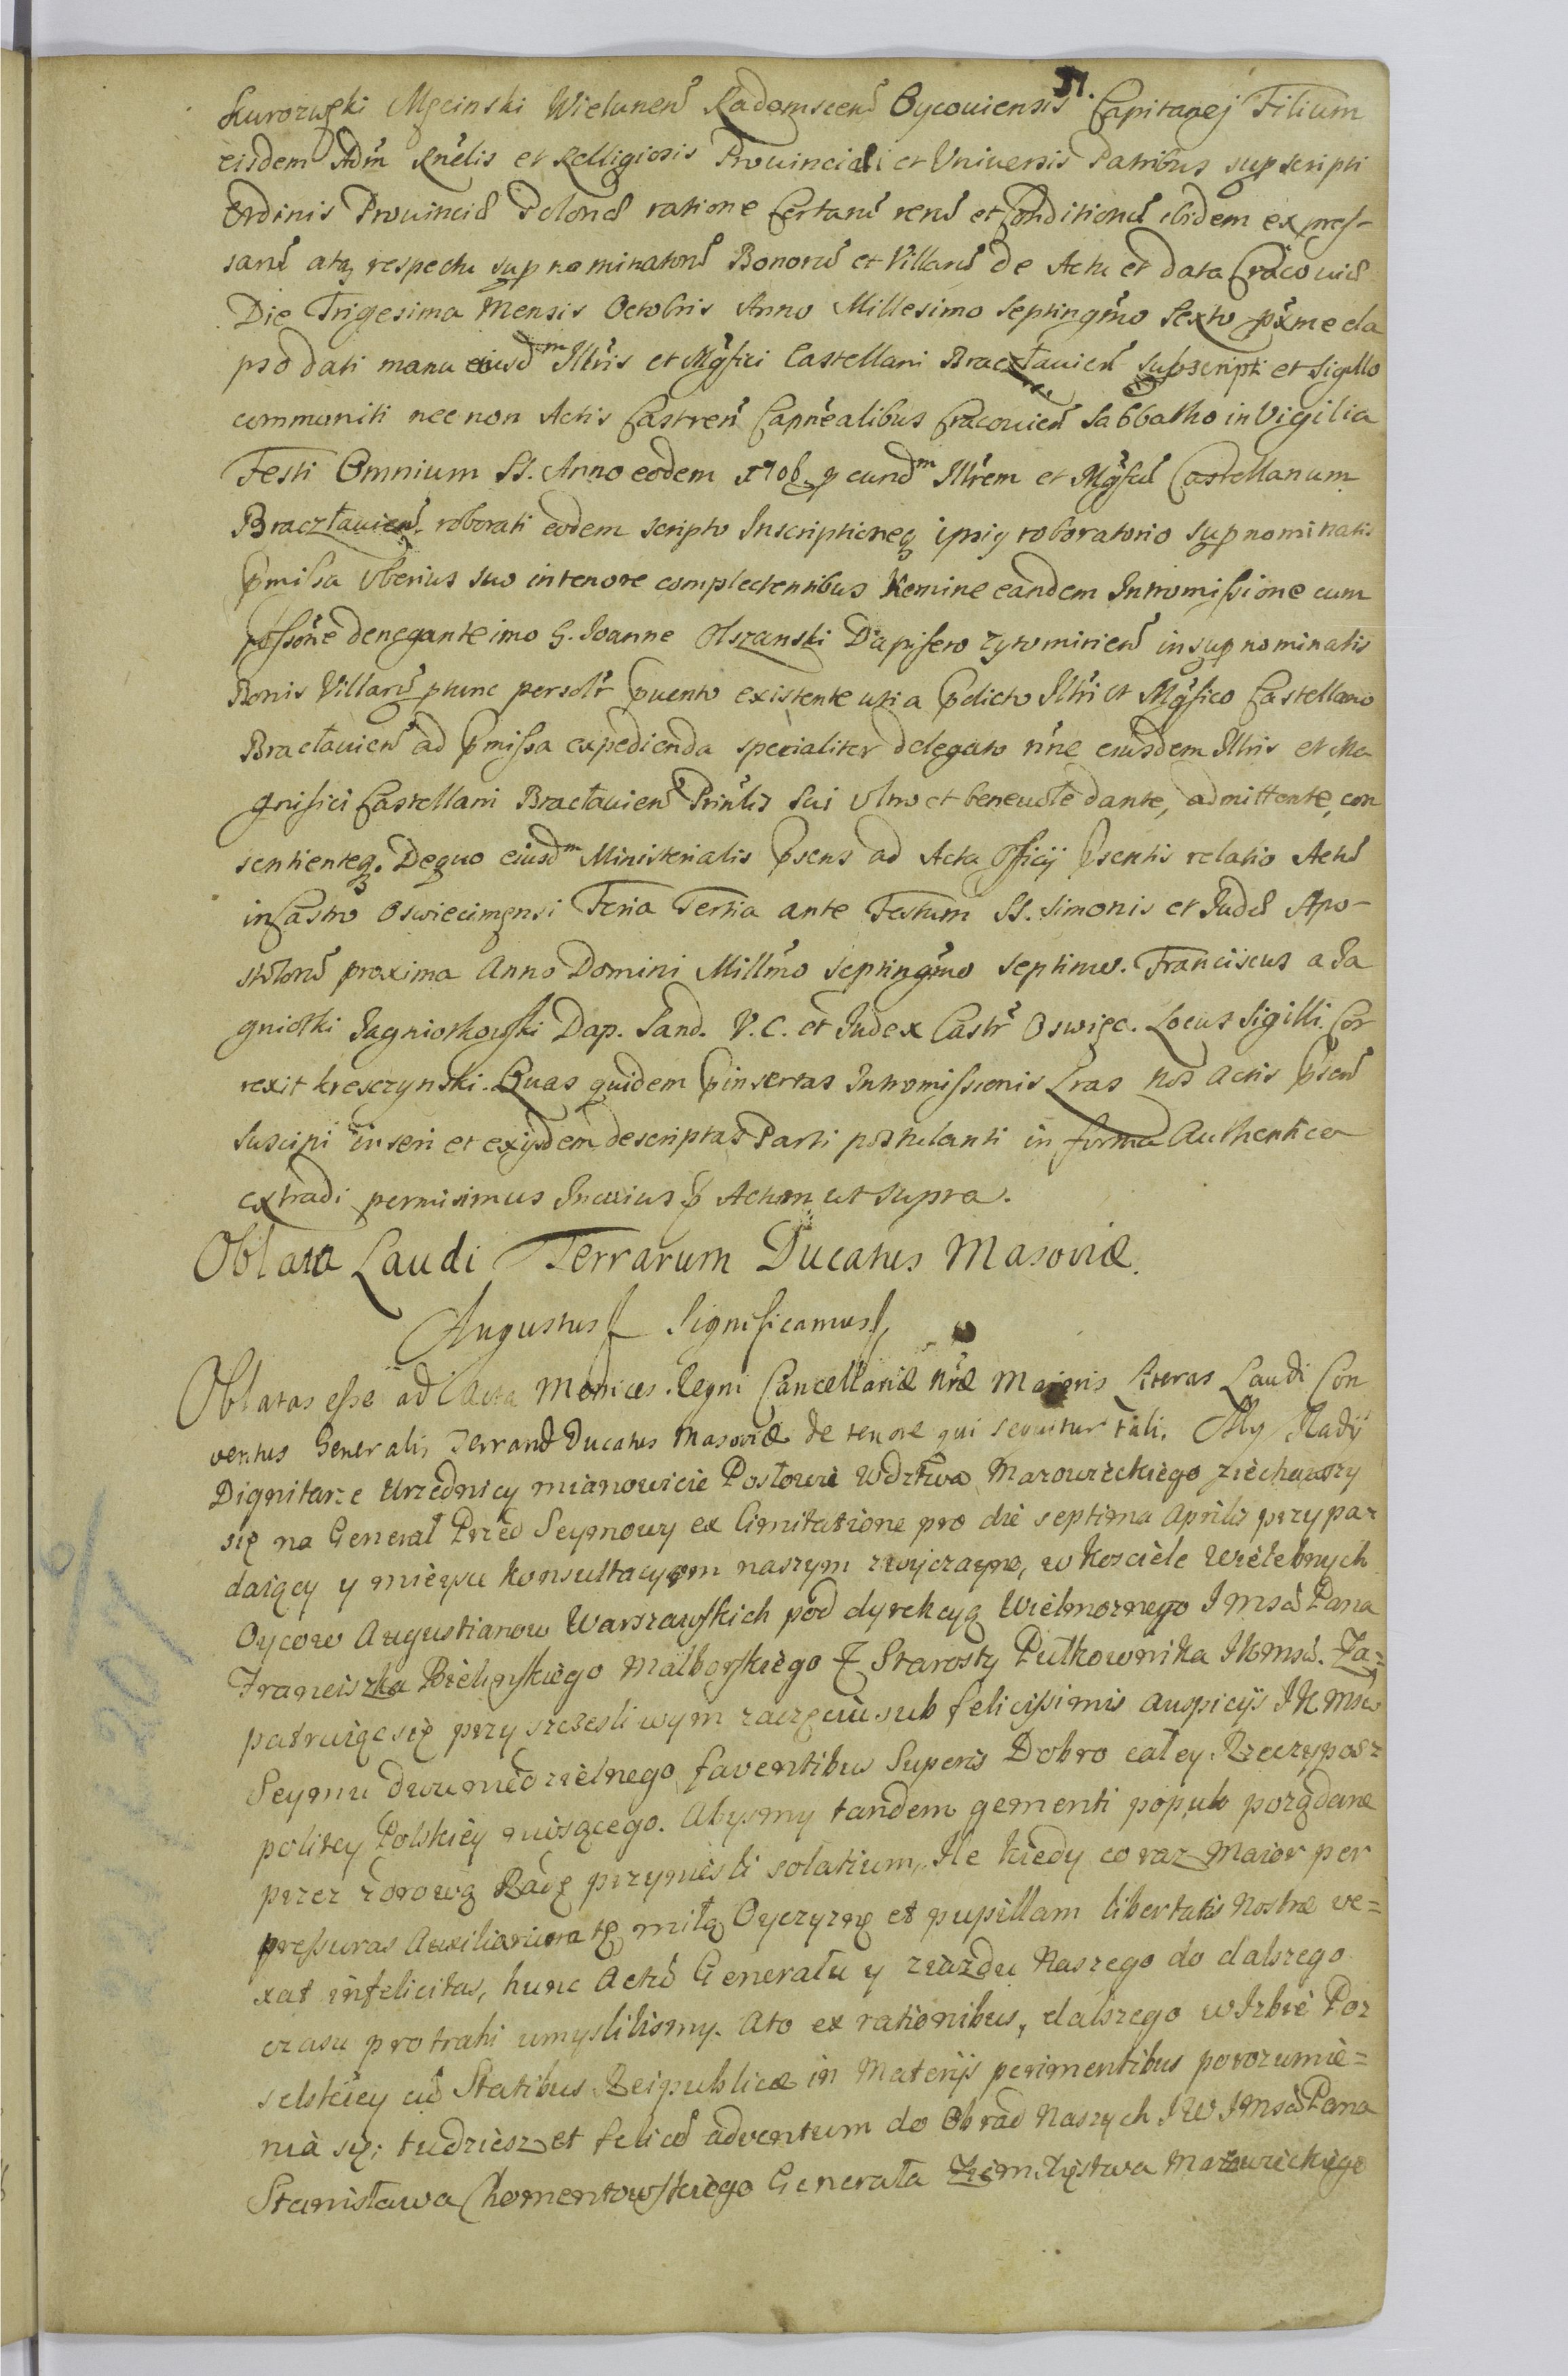 51.
Kurozwęki Męcinski Wielunen̄ Radomscen̄ Oycouiensis Capitanej Filium
eisdem Adm̄ Rn̄elis et Relligiosis Prouinciali et Vniuersis Patribus supscripti
Ordinis Prouinciæ Polonæ ratione Certarū rerū et Conditionū ibidem expres-
sarū atq respectu supnominatorū Bonorū et Villarū de Actu et data Cracouiæ
Die Trigesima Mensis Octobris Anno Millesimo Septingmo Sexto pxme ela
pso dati manu eiusdm Illtris et Mgfici Castellani Bractauien̄ subscripti et Sigillo
communiti nec non Actis Castren̄ Capnealibus Cracouien̄ Sabbatho in Vigilia
Festi Omnium SS. Anno eodem 1706. p eundm Illrem et Mgfcū Castellanum
Bracztauien̄ roborati eodem scripto Inscriptioneq ipsiq roboratorio supnominatis
pmissa Vberius suo in tenore complectentibus Nemine eandem Intromissione cum
possōne denegante imo G. Joanne Olszanski Dapifero Zytomirien̄ in supnominatis
Bonis Villarū ptunc persolr puento existente uti a pdicto Illri et Mgfico Castellano
Bractauien̄ ad pmissa expedienda specialiter delegato nīne eiusdem Illris et Ma
gnifici Castellani Bractauien̄ Prinlis Sui Vltro et beneuole dante, admittente, con
sentienteq. De quo eiusdm Ministerialis psens ad Acta Officij psentis relatio Actū
in Castro Oswiecimensi Feria Tertia ante Festum SS. Simonis et Judæ Apo-
stolorū proxima Anno Domini Millmo Septingmo Septimo. Franciscus a Ja
gniotki Jagniotkowski Dap. Sand. V.C. et Judex Castr Oswięc. Locus Sigilli. Cor
rexit kresczynski. Quas quidem pinsertas Intromissionis Lras Nos Actis psen̄
Suscipi inseri et exijsdem descriptas Parti postulanti in forma Authentica
extradi permisimus In cuius p Actum ut supra.
Oblata Laudi Terrarum Ducatus Masoviæ.
Augustus Significamus
Oblatas esse ad Acta Metrices Regni Cancellariæ nræ Maioris Literas Laudi Con
ventus Generalis Terrarū Ducatus Masoviæ de tenore qui sequitur tali. My Rady
Dignitarze Urzednicy mianowicie Posłowie Wdztwa Mazowieckiego ziechawszy
się na Generał Przed Seymowy ex limitatione pro die septima Aprilis przypa=
daiący y mieyscu konsultacyom naszym zwyczayne, w kosciele Wielebnych
Oycow Augustianow Warszawskich pod dyrekcyą Wielmoznego Jmsci Pana
Franciszka Bielinskiego Malborskiego Starosty Pułkownika JKmsci. Za=
patruiąc się przy szczesliwym zaczęciu sub felicissimis auspicijs JKMsci
Seymu dwuniedzielnego faventibus Superis Dobro całey Rzeczypos=
politey Polskiey niosącego. Abysmy tandem gementi populo porządane
przez zdrową Radę przyniesli solatium, Ile kiedy co raz maior per
pressuras Auxiliarium tę miłą Oyczyznę et pupillam libertatis Nostræ ve=
xat infelicitas, hunc Actū Generału y ziazdu Naszego do dalszego
czasu protrahi umyslilismy. Ato ex rationibus, dalszego w Izbie Po=
selskiey cū Statibus Reipublicæ in Materijs perimentibus porozumie=
nia się; tudziesz et felicē adventum do Obrad Naszych JW Jmsci Pana
Stanisława Chomentowskiego Generała Ziem Xięstwa Mazowieckiego